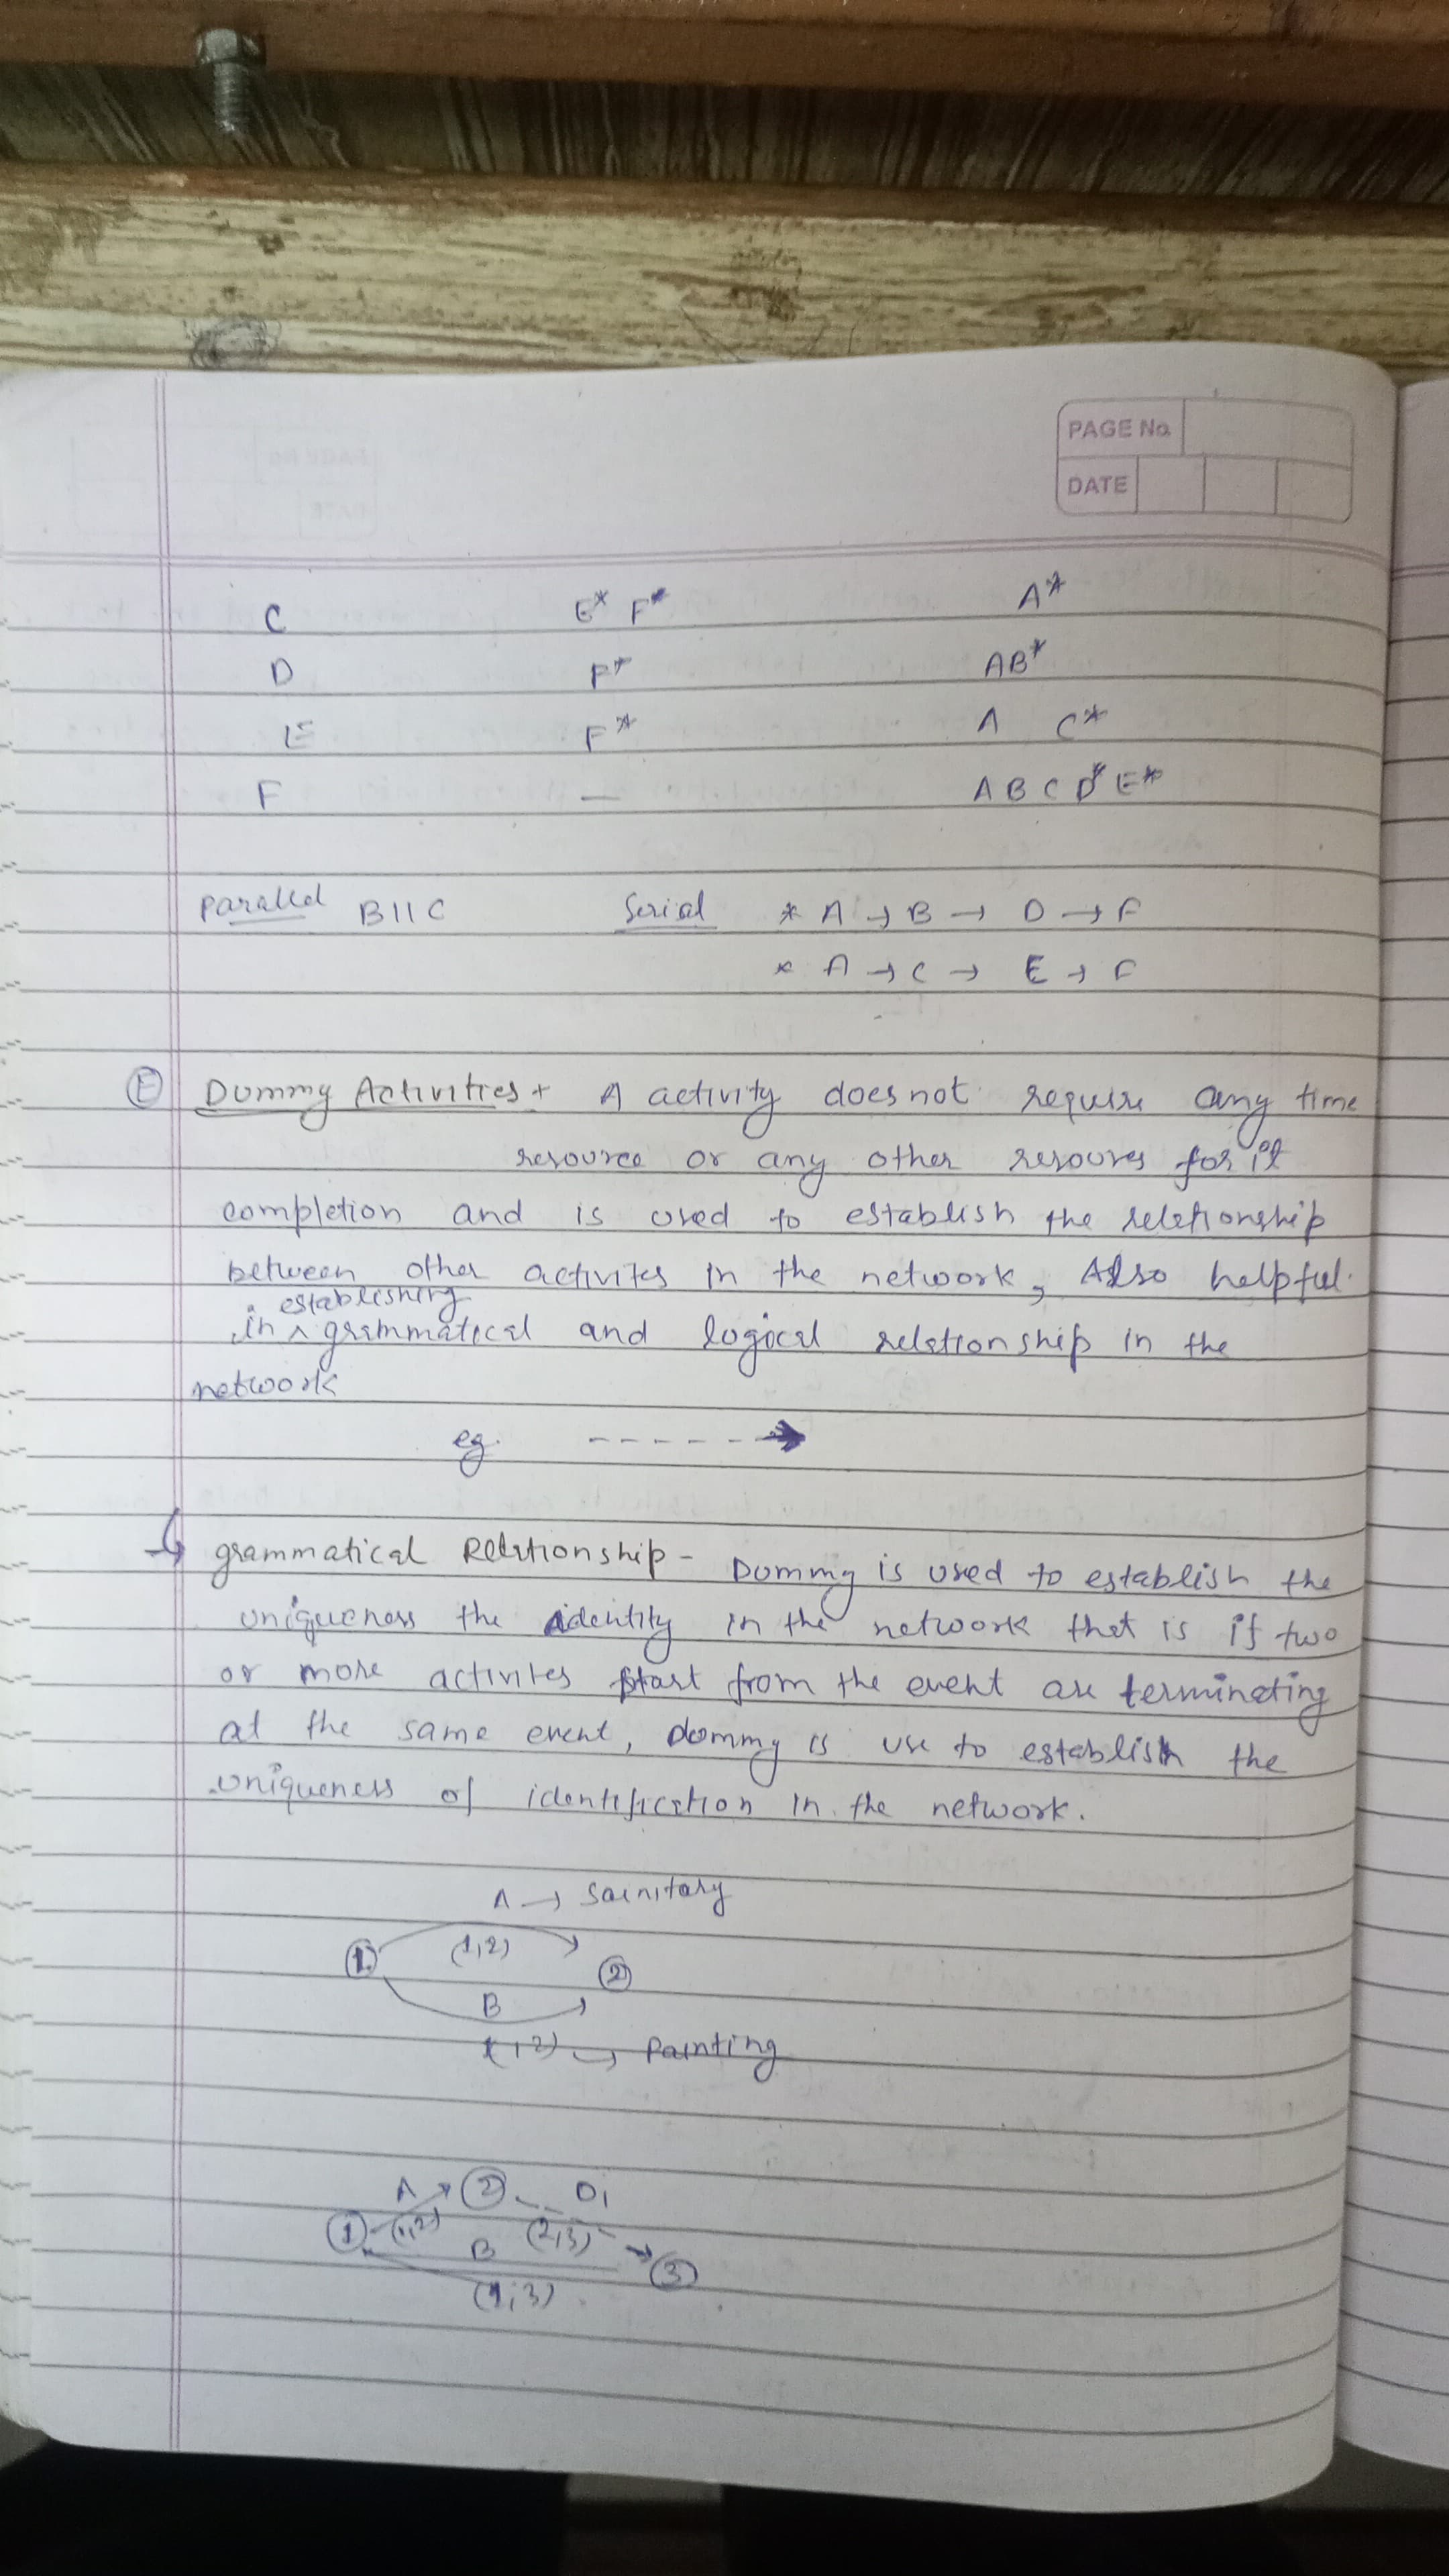 PAGE No.
DATE
C E* F* A*
D F* AB*
E F* A C*
F — A B C D* E*
Parallel B||C Serial * A → B → D → F
* A → C → E → F
(E) Dummy Activities + A activity does not require any time
resource or any other resoures for it
completion and is used to establish the reletionship
between other activites in the network, Also helpful
establishing
in ^ grammatical and logical reletionship in the
network
eg. ------→
↳ grammatical Reletionship - Dummy is used to establish the
uniqueness the identity in the network that is if two
or more activites start from the event are terminating
at the same event, dommy is use to establish the
uniqueness of identification in the network.
A → Sainitary
(1) (1,2) (2)
B
(1,2) → Painting
A (2) D1
(1) (1,2) (2,3)
B (3)
(1,3)